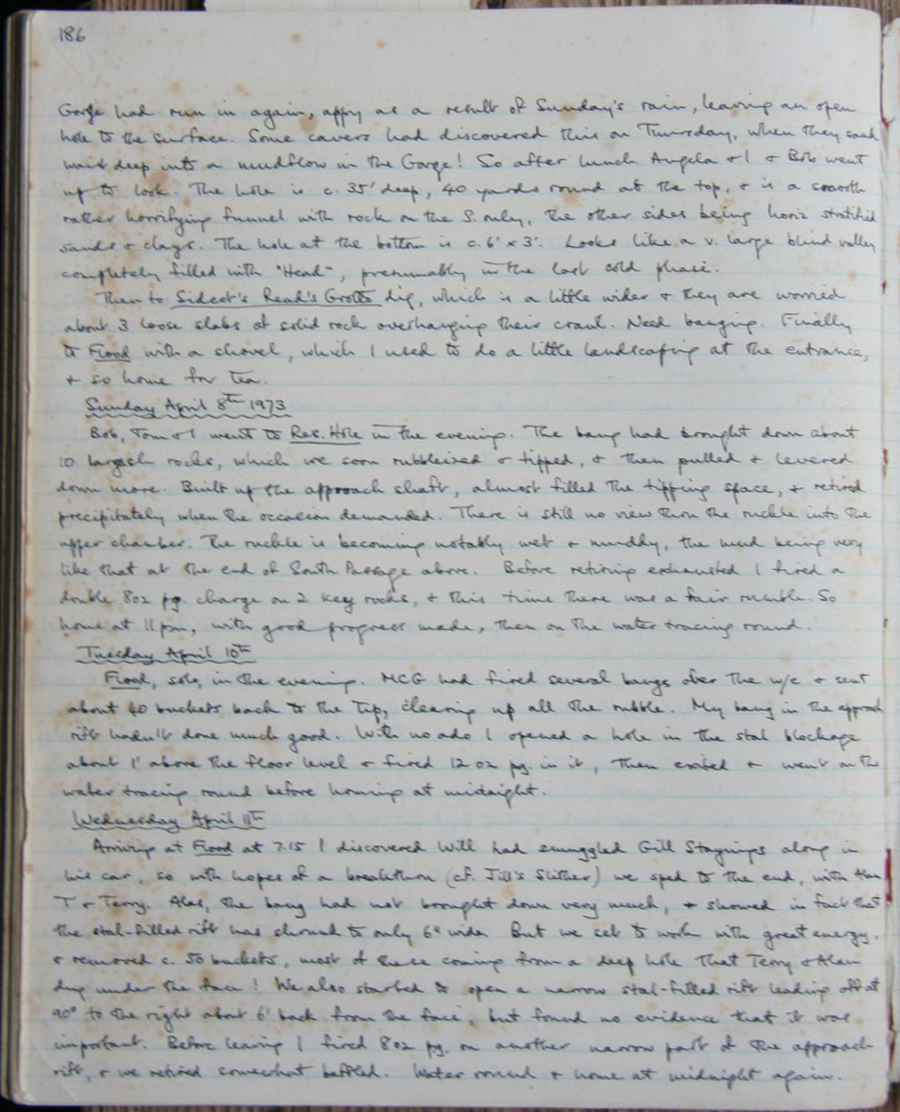 186
Gorge had run in again, appy as a result of Sunday's rain, leaving an open
hole to the surface. Some cavers had discovered this on Thursday, when they sank
waist deep into a mudflow in the Gorge! So after lunch Angela & I & Bob went
up to look. The hole is c. 35' deep, 40 yards round at the top, & is a smooth
rather horrifying funnel with rock on the S. only, the other sides being horiz stratified
sands & clays. The hole at the bottom is c. 6' x 3'. Looks like a v. large blind valley
completely filled with "Head", presumably in the last cold phase.
Then to Sidcot's Read's Grotto dig, which is a little wider & they are worried
about 3 loose slabs of solid rock overhanging their crawl. Need banging. Finally
to Flood with a shovel, which I used to do a little landscaping at the entrance,
& so home for tea.
Sunday April 8th 1973
Bob, Tom & I went to Res. Hole in the evening. The bang had brought down about
10 largish rocks, which we soon rubbleized & tipped, & then pulled & levered
down more. Built up the approach shaft, almost filled the tipping space, & retired
precipitately when the occasion demanded. There is still no view thro the ruckle into the
upper chamber. The ruckle is becoming notably wet & muddy, the mud being very
like that at the end of South Passage above. Before retiring exhausted I fired a
double 8oz pg. charge on 2 key rocks, & this time there was a fair rumble. So
home at 11 pm, with good progress made, then on the water tracing round.
Tuesday April 10th
Flood, solo, in the evening. MCG had fired several bangs over the w/e & sent
about 40 buckets back to the top, clearing up all the rubble. My bang in the approach
rift hadn't done much good. With no ado I opened a hole in the stal blockage
about 1' above the floor level & fired 12 oz pg. in it, then exited & went on the
water tracing round before homing at midnight.
Wednesday April 11th
Arriving at Flood at 7.15 I discovered Will had smuggled Gill Staynings along in
his car, so with hopes of a breakthru (cf. Jill's Slither) we sped to the end, with Alan
T & Terry. Alas, the bang had not brought down very much, & showed in fact that
the stal-filled rift has shrunk to only 6" wide. But we set to work with great energy.
& removed c. 50 buckets, most of these coming from a deep hole that Terry & Alan
dug under the face! We also started to open a narrow stal-filled rift leading off at
90° to the right about 6' back from the face, but found no evidence that it was
important. Before leaving I fired 8oz pg. on another narrow part of the approach
rift, & we retired somewhat baffled. Water round & home at midnight again.